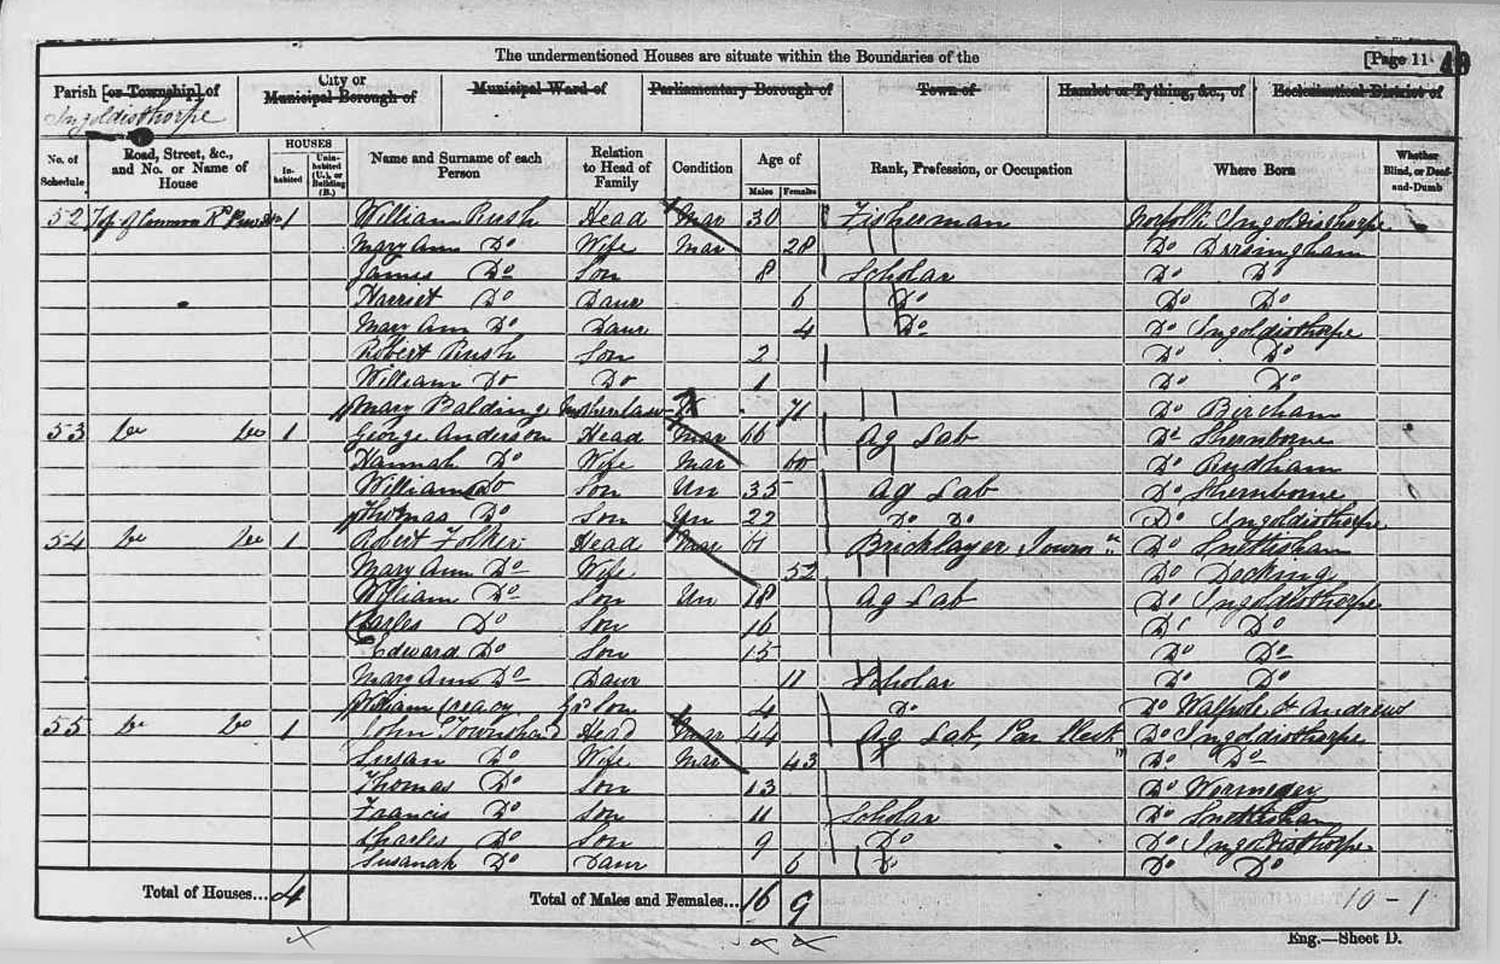 The undermentioned Houses are situate within the Boundaries of the
[Page 11
Parish [or Township] of
Ingoldisthorpe
City or
Municipal Borough of
Municipal Ward of
Parliamentary Borough of
Town of
Hamlet or Tything, &c., of
Ecclesiastical District of
No. of Schedule
Road, Street, &c., and No. or Name of House
HOUSES
In-habited
Unin-habited (U.), or Building (B.)
Name and Surname of each Person
Relation to Head of Family
Condition
Age of
Males
Females
Rank, Profession, or Occupation
Where Born
Whether Blind, or Deaf-and-Dumb
52 Top of Common 1 William Rush Head Mar 30 Fisherman Norfolk Ingoldisthorpe
Mary Ann Do Wife Mar 28 Do Dersingham
James Do Son 8 Scholar Do Do
Harriet Do Daur 6 Do Do Do
Mary Ann Do Daur 4 Do Do Ingoldisthorpe
Robert Rush Son 2 Do Do
William Do Do 1 Do Do
Mary Balding Motherlaw 71 Do Bircham
53 Do Do 1 George Anderson Head Mar 66 Ag Lab Do Shernborne
Hannah Do Wife Mar 60 Do Rudham
William Do Son Un 35 Ag Lab Do Shernborne
Thomas Do Son Un 22 Do Do Do Ingoldisthorpe
54 Do Do 1 Robert Folker Head Mar 61 Bricklayer Journ Do Snettisham
Mary Ann Do Wife 52 Do Docking
William Do Son Un 18 Ag Lab Do Ingoldisthorpe
Charles Do Son 16 Do Do
Edward Do Son 15 Do Do
Mary Ann Do Daur 11 Scholar Do Do
William Creacy Gr Son 4 Do Do Walpole St Andrews
55 Do Do 1 John Townshend Head Mar 44 Ag Lab, Par Clerk Do Ingoldisthorpe
Susan Do Wife Mar 43 " Do Do
Thomas Do Son 13 Do Wormegay
Francis Do Son 11 Scholar Do Snettisham
Charles Do Son 9 Do Do Ingoldisthorpe
Susanah Do Daur 6 Do Do Do
Total of Houses... 4
Total of Males and Females... 16 9
10 - 1
Eng.—Sheet D.